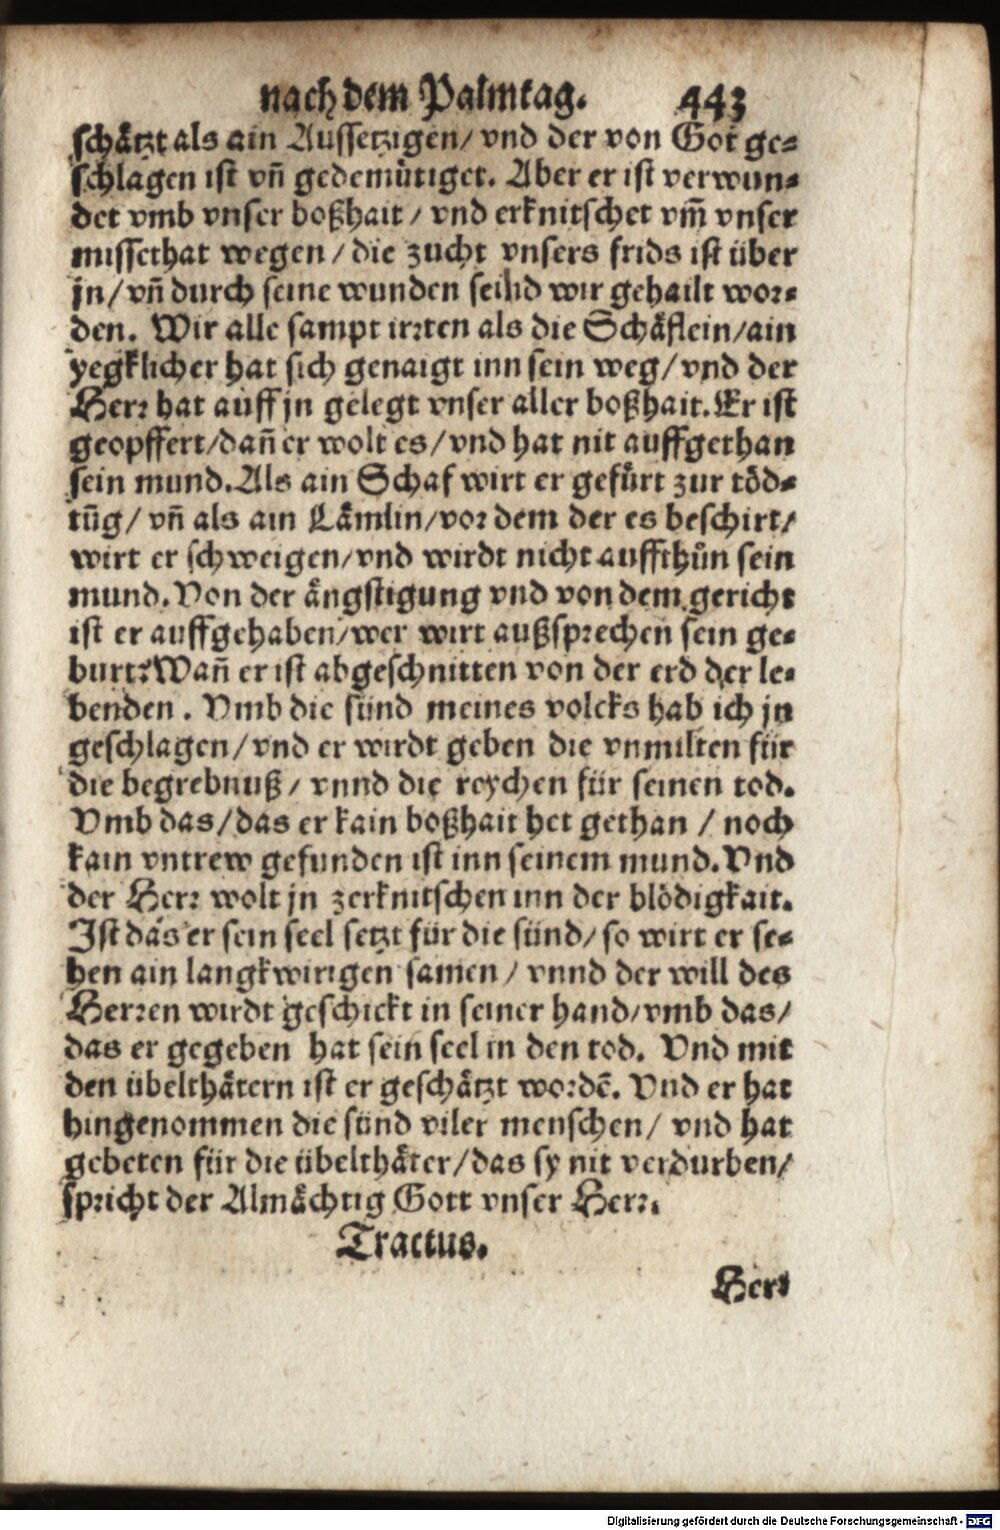 nach dem Palmtag. 443
schätzt als ain Aussetzigen/ vnd der von Got ge-
schlagen ist vñ gedemütiget. Aber er ist verwun-
det vmb vnser boßhait / vnd erknitschet vm̃ vnser
missethat wegen / die zucht vnsers frids ist über
jn / vñ durch seine wunden seind wir gehailt wor-
den. Wir alle sampt irrten als die Schäflein/ain
yegklicher hat sich genaigt inn sein weg/ vnd der
Herr hat auff jn gelegt vnser aller boßhait. Er ist
geopffert/dañ er wolt es/vnd hat nit auffgethan
sein mund. Als ain Schaf wirt er gefürt zur töd-
tũg/ vñ als ain Lämlin/vor dem der es beschirt/
wirt er schweigen/vnd wirdt nicht auffthůn sein
mund. Von der ängstigung vnd von dem gericht
ist er auffgehaben/wer wirt außsprechen sein ge-
burt? Wañ er ist abgeschnitten von der erd der le-
benden . Vmb die sünd meines volcks hab ich jn
geschlagen/vnd er wirdt geben die vnmilten für
die begrebnuß / vnnd die reychen für seinen tod.
Vmb das/das er kain boßhait het gethan / noch
kain vntrew gefunden ist inn seinem mund. Vnd
der Herr wolt jn zerknitschen inn der blödigkait.
Ist das er sein seel setzt für die sünd/ so wirt er se-
hen ain langkwirigen samen / vnnd der will des
Herren wirdt geschickt in seiner hand/vmb das/
das er gegeben hat sein seel in den tod. Vnd mit
den übelthätern ist er geschätzt wordẽ. Vnd er hat
hingenommen die sünd viler menschen/ vnd hat
gebeten für die übelthäter/das sy nit verdurben/
spricht der Almächtig Gott vnser Herr.
Tractus.
Herr
Digitalisierung gefördert durch die Deutsche Forschungsgemeinschaft - DFG